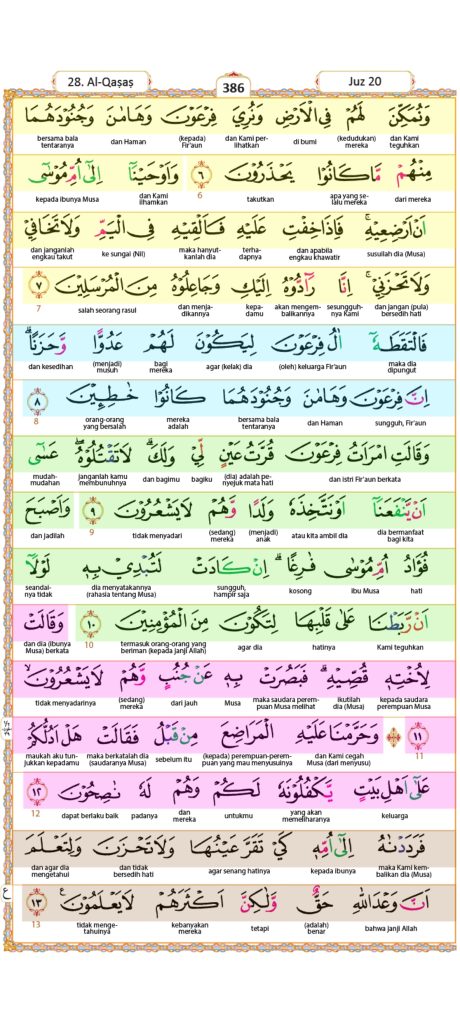 28. Al-Qaṣaṣ 386 Juz 20
وَنُمَكِّنَ لَهُمْ فِى الْاَرْضِ وَنُرِيَ فِرْعَوْنَ وَهَامٰنَ وَجُنُوْدَهُمَا
dan Kami teguhkan (kedudukan) mereka di bumi dan Kami perlihatkan (kepada) Fir'aun dan Haman bersama bala tentaranya
مِنْهُمْ مَّا كَانُوْا يَحْذَرُوْنَ ٦ وَاَوْحَيْنَآ اِلٰٓى اُمِّ مُوْسٰٓى
dari mereka apa yang selalu mereka takutkan 6 dan Kami ilhamkan kepada ibunya Musa
اَنْ اَرْضِعِيْهِۚ فَاِذَا خِفْتِ عَلَيْهِ فَاَلْقِيْهِ فِى الْيَمِّ وَلَا تَخَافِيْ
susuilah dia (Musa) dan apabila engkau khawatir terhadapnya maka hanyutkanlah dia ke sungai (Nil) dan janganlah engkau takut
وَلَا تَحْزَنِيْۚ اِنَّا رَاۤدُّوْهُ اِلَيْكِ وَجَاعِلُوْهُ مِنَ الْمُرْسَلِيْنَ ٧
dan jangan (pula) bersedih hati sesungguhnya Kami akan mengembalikannya kepadamu dan menjadikannya salah seorang rasul 7
فَالْتَقَطَهٗٓ اٰلُ فِرْعَوْنَ لِيَكُوْنَ لَهُمْ عَدُوًّا وَّحَزَنًاۗ
maka dia dipungut (oleh) keluarga Fir'aun agar (kelak) dia bagi mereka (menjadi) musuh dan kesedihan
اِنَّ فِرْعَوْنَ وَهَامٰنَ وَجُنُوْدَهُمَا كَانُوْا خٰطِـِٕيْنَ ٨
sungguh, Fir'aun dan Haman bersama bala tentaranya mereka adalah orang-orang yang bersalah 8
وَقَالَتِ امْرَاَتُ فِرْعَوْنَ قُرَّتُ عَيْنٍ لِّيْ وَلَكَۗ لَا تَقْتُلُوْهُۖ عَسٰٓى
dan istri Fir'aun berkata (dia) adalah penyejuk mata hati bagiku dan bagimu janganlah kamu membunuhnya mudah-mudahan
اَنْ يَّنْفَعَنَآ اَوْ نَتَّخِذَهٗ وَلَدًا وَّهُمْ لَا يَشْعُرُوْنَ ٩ وَاَصْبَحَ
dia bermanfaat bagi kita atau kita ambil dia (menjadi) anak (sedang) mereka tidak menyadari 9 dan jadilah
فُؤَادُ اُمِّ مُوْسٰى فٰرِغًاۗ اِنْ كَادَتْ لَتُبْدِيْ بِهٖ لَوْلَآ
hati ibu Musa kosong sungguh, hampir saja dia menyatakannya (rahasia tentang Musa) seandainya tidak
اَنْ رَّبَطْنَا عَلٰى قَلْبِهَا لِتَكُوْنَ مِنَ الْمُؤْمِنِيْنَ ١٠ وَقَالَتْ
Kami teguhkan hatinya agar dia termasuk orang-orang yang beriman (kepada janji Allah) 10 dan dia (ibunya Musa) berkata
لِاُخْتِهٖ قُصِّيْهِۗ فَبَصُرَتْ بِهٖ عَنْ جُنُبٍ وَّهُمْ لَا يَشْعُرُوْنَۙ
kepada saudara perempuan Musa ikutilah dia (Musa) maka saudara perempuan Musa melihat dia (Musa) dari jauh (sedang) mereka tidak menyadarinya
١١ ۞ وَحَرَّمْنَا عَلَيْهِ الْمَرَاضِعَ مِنْ قَبْلُ فَقَالَتْ هَلْ اَدُلُّكُمْ
11 dan Kami cegah Musa (dari menyusu) (kepada) perempuan-perempuan yang mau menyusuinya sebelum itu maka berkatalah dia (saudaranya Musa) maukah aku tunjukkan kepadamu
عَلٰٓى اَهْلِ بَيْتٍ يَّكْفُلُوْنَهٗ لَكُمْ وَهُمْ لَهٗ نٰصِحُوْنَ ١٢
keluarga yang akan memeliharanya untukmu dan mereka padanya dapat berlaku baik 12
فَرَدَدْنٰهُ اِلٰٓى اُمِّهٖ كَيْ تَقَرَّ عَيْنُهَا وَلَا تَحْزَنَ وَلِتَعْلَمَ
maka Kami kembalikan dia (Musa) kepada ibunya agar senang hatinya dan tidak bersedih hati dan agar dia mengetahui
اَنَّ وَعْدَ اللّٰهِ حَقٌّ وَّلٰكِنَّ اَكْثَرَهُمْ لَا يَعْلَمُوْنَۚ ١٣ ع
bahwa janji Allah (adalah) benar tetapi kebanyakan mereka tidak mengetahuinya 13